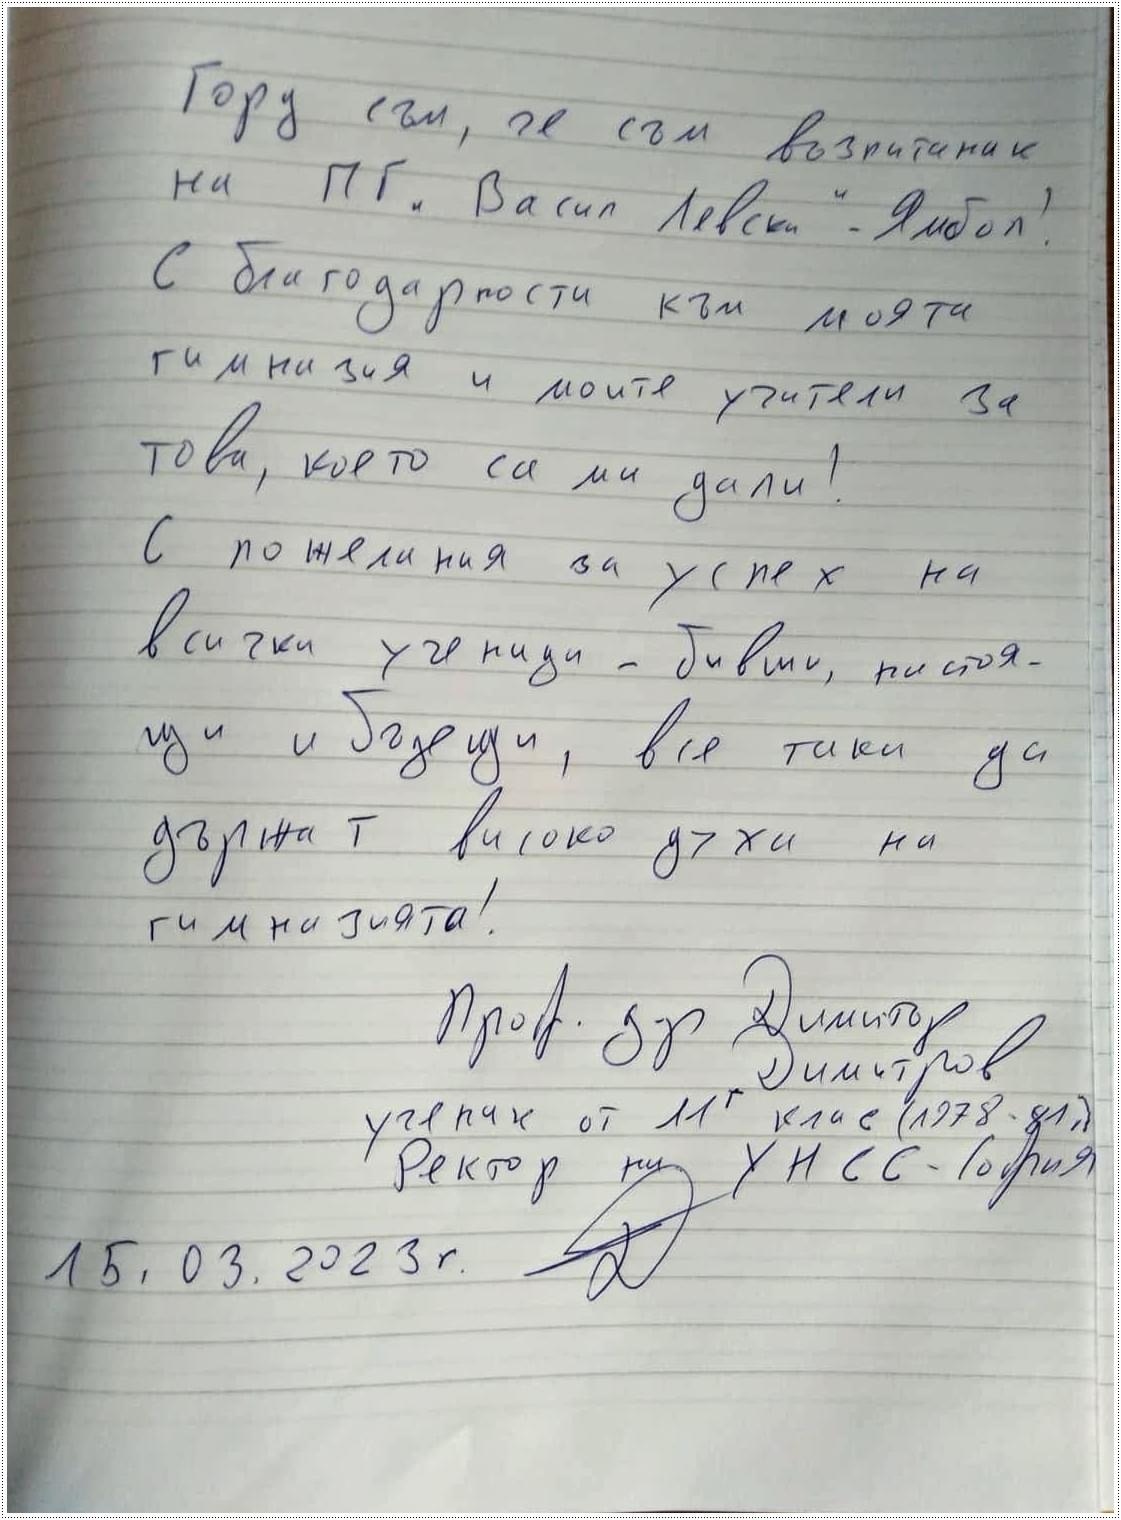 Горд съм, че съм възпитаник
на ПГ „Васил Левски“ - Ямбол!
С благодарности към моята
гимназия и моите учители за
това, което са ми дали!
С пожелания за успех на
всички ученици - бивши, настоя-
щи и бъдещи, все таки да
държат високо духа на
гимназията!
Проф. д-р Димитър
Димитров
ученик от 11г клас (1978-81г.)
Ректор на УНСС - София
15.03.2023г.